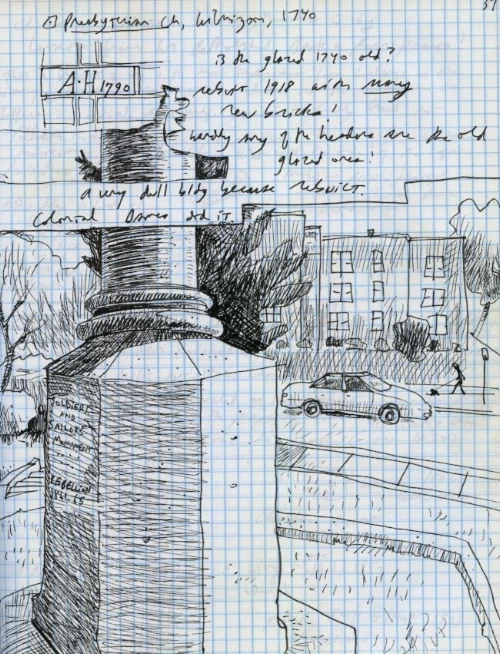 37
Presbyterian Ch, Wilmington, 1740
A·H 1790
is the glazed 1740 old?
rebuilt 1918 with many
new bricks!
hardly any of the headers are the old
glazed ones!
a very dull bldg because rebuilt.
Colonial Dames did it
SOLDIERS
AND
SAILORS
MONUMENT
REBELLION
1861-65